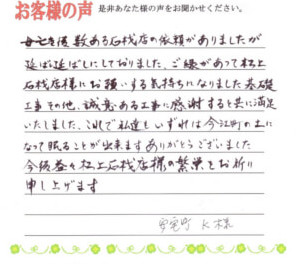 お客様の声 是非あなた様の声をお聞かせください。
母亡き後数ある石桟店の依頼がありましたが
延ばし延ばしにしておりました、ご縁があって村上
石桟店様にお願いする気持ちになりました 基礎
工事その他、誠意ある工事に感謝すると共に満足
いたしました、これで私達もいずれは今江町の土に
なって眠ることが出来ます ありがとうございました
今後益々村上石桟店様の繁栄をお祈り
申し上げます
町 K様